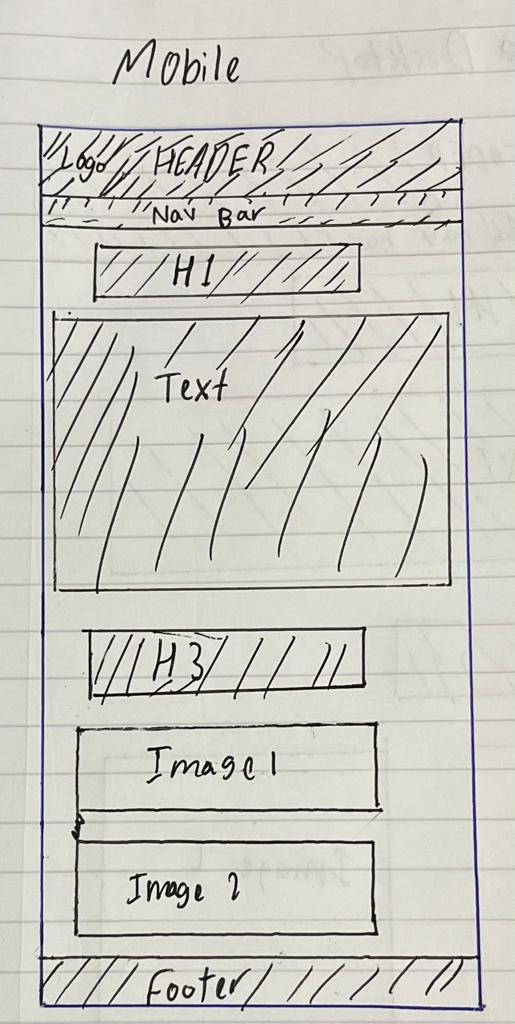 Mobile
Logo HEADER
Nav Bar
H1
Text
H3
Image 1
Image 2
Footer